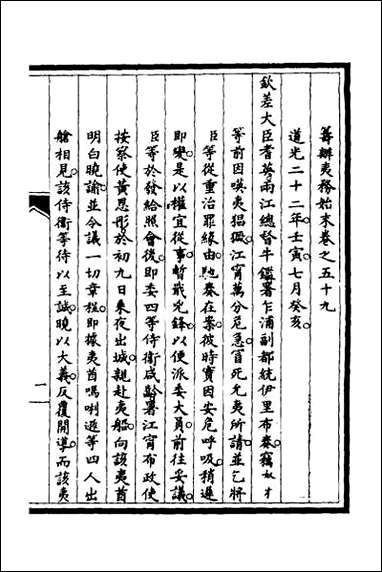 籌辦夷務始末卷之五十九
道光二十二年壬寅七月癸亥
欽差大臣耆英兩江總督牛鑑署乍浦副都統伊里布奏竊奴才
等前因㗎夷猖獗江甯萬分危急冒死允夷所請並乞將
臣等從重治罪緣由馳奏在案彼時實因安危呼吸稍遲
即變是以權宜從事暫戢兇鋒以便派委大員前往妥議
臣等於發給照會後即委四等侍衛咸齡署江甯布政使
按察使黃恩彤於初九日乘夜出城親赴夷艙向該夷酋
明白曉諭並令議一切章程即據夷酋嗎唎遜等四人出
艙相見該侍衛等待以至誠曉以大義反覆開導而該夷
一